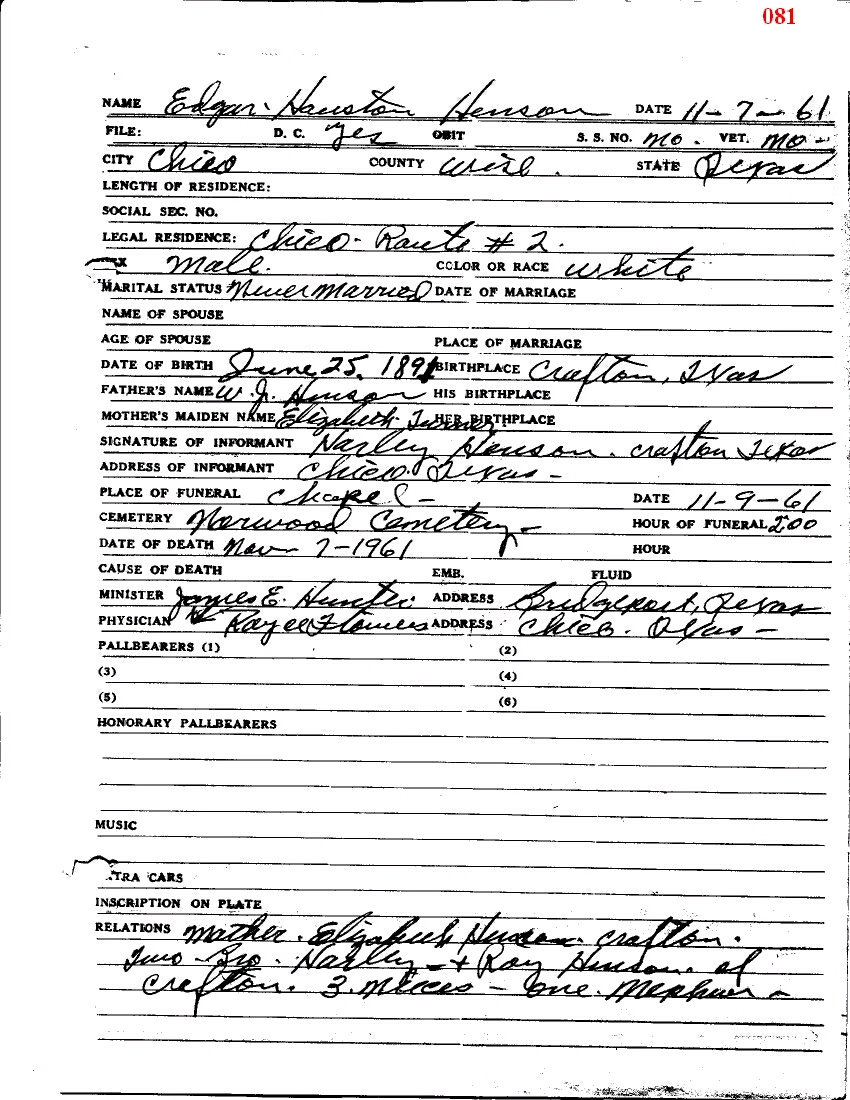 081
NAME Edgar Hauston Henson DATE 11-7-61
FILE: D. C. yes OBIT S. S. NO. no. VET. no -
CITY Chico COUNTY Wise . STATE Texas
LENGTH OF RESIDENCE:
SOCIAL SEC. NO.
LEGAL RESIDENCE: Chico - Route # 2.
X Male. COLOR OR RACE white
MARITAL STATUS Never married DATE OF MARRIAGE
NAME OF SPOUSE
AGE OF SPOUSE PLACE OF MARRIAGE
DATE OF BIRTH June 25, 1891 BIRTHPLACE Crafton, Texas
FATHER'S NAME W. J. Henson HIS BIRTHPLACE
MOTHER'S MAIDEN NAME Elizabeth HER BIRTHPLACE
SIGNATURE OF INFORMANT Harley Henson. Crafton Texas
ADDRESS OF INFORMANT Chico. Texas -
PLACE OF FUNERAL Chapel - DATE 11-9-61
CEMETERY Norwood Cemetery - HOUR OF FUNERAL 200
DATE OF DEATH Nov - 7-1961 HOUR
CAUSE OF DEATH EMB. FLUID
MINISTER James E. Hunter ADDRESS Bridgeport, Texas
PHYSICIAN ADDRESS Chico. Texas -
PALLBEARERS (1) (2)
(3) (4)
(5) (6)
HONORARY PALLBEARERS
MUSIC
TRA CARS
INSCRIPTION ON PLATE
RELATIONS Mother. Elizabeth Henson. Crafton.
Two - Bro. Harley - + Ray Henson. of
Crafton. 3. Nieces - one. Nephew -